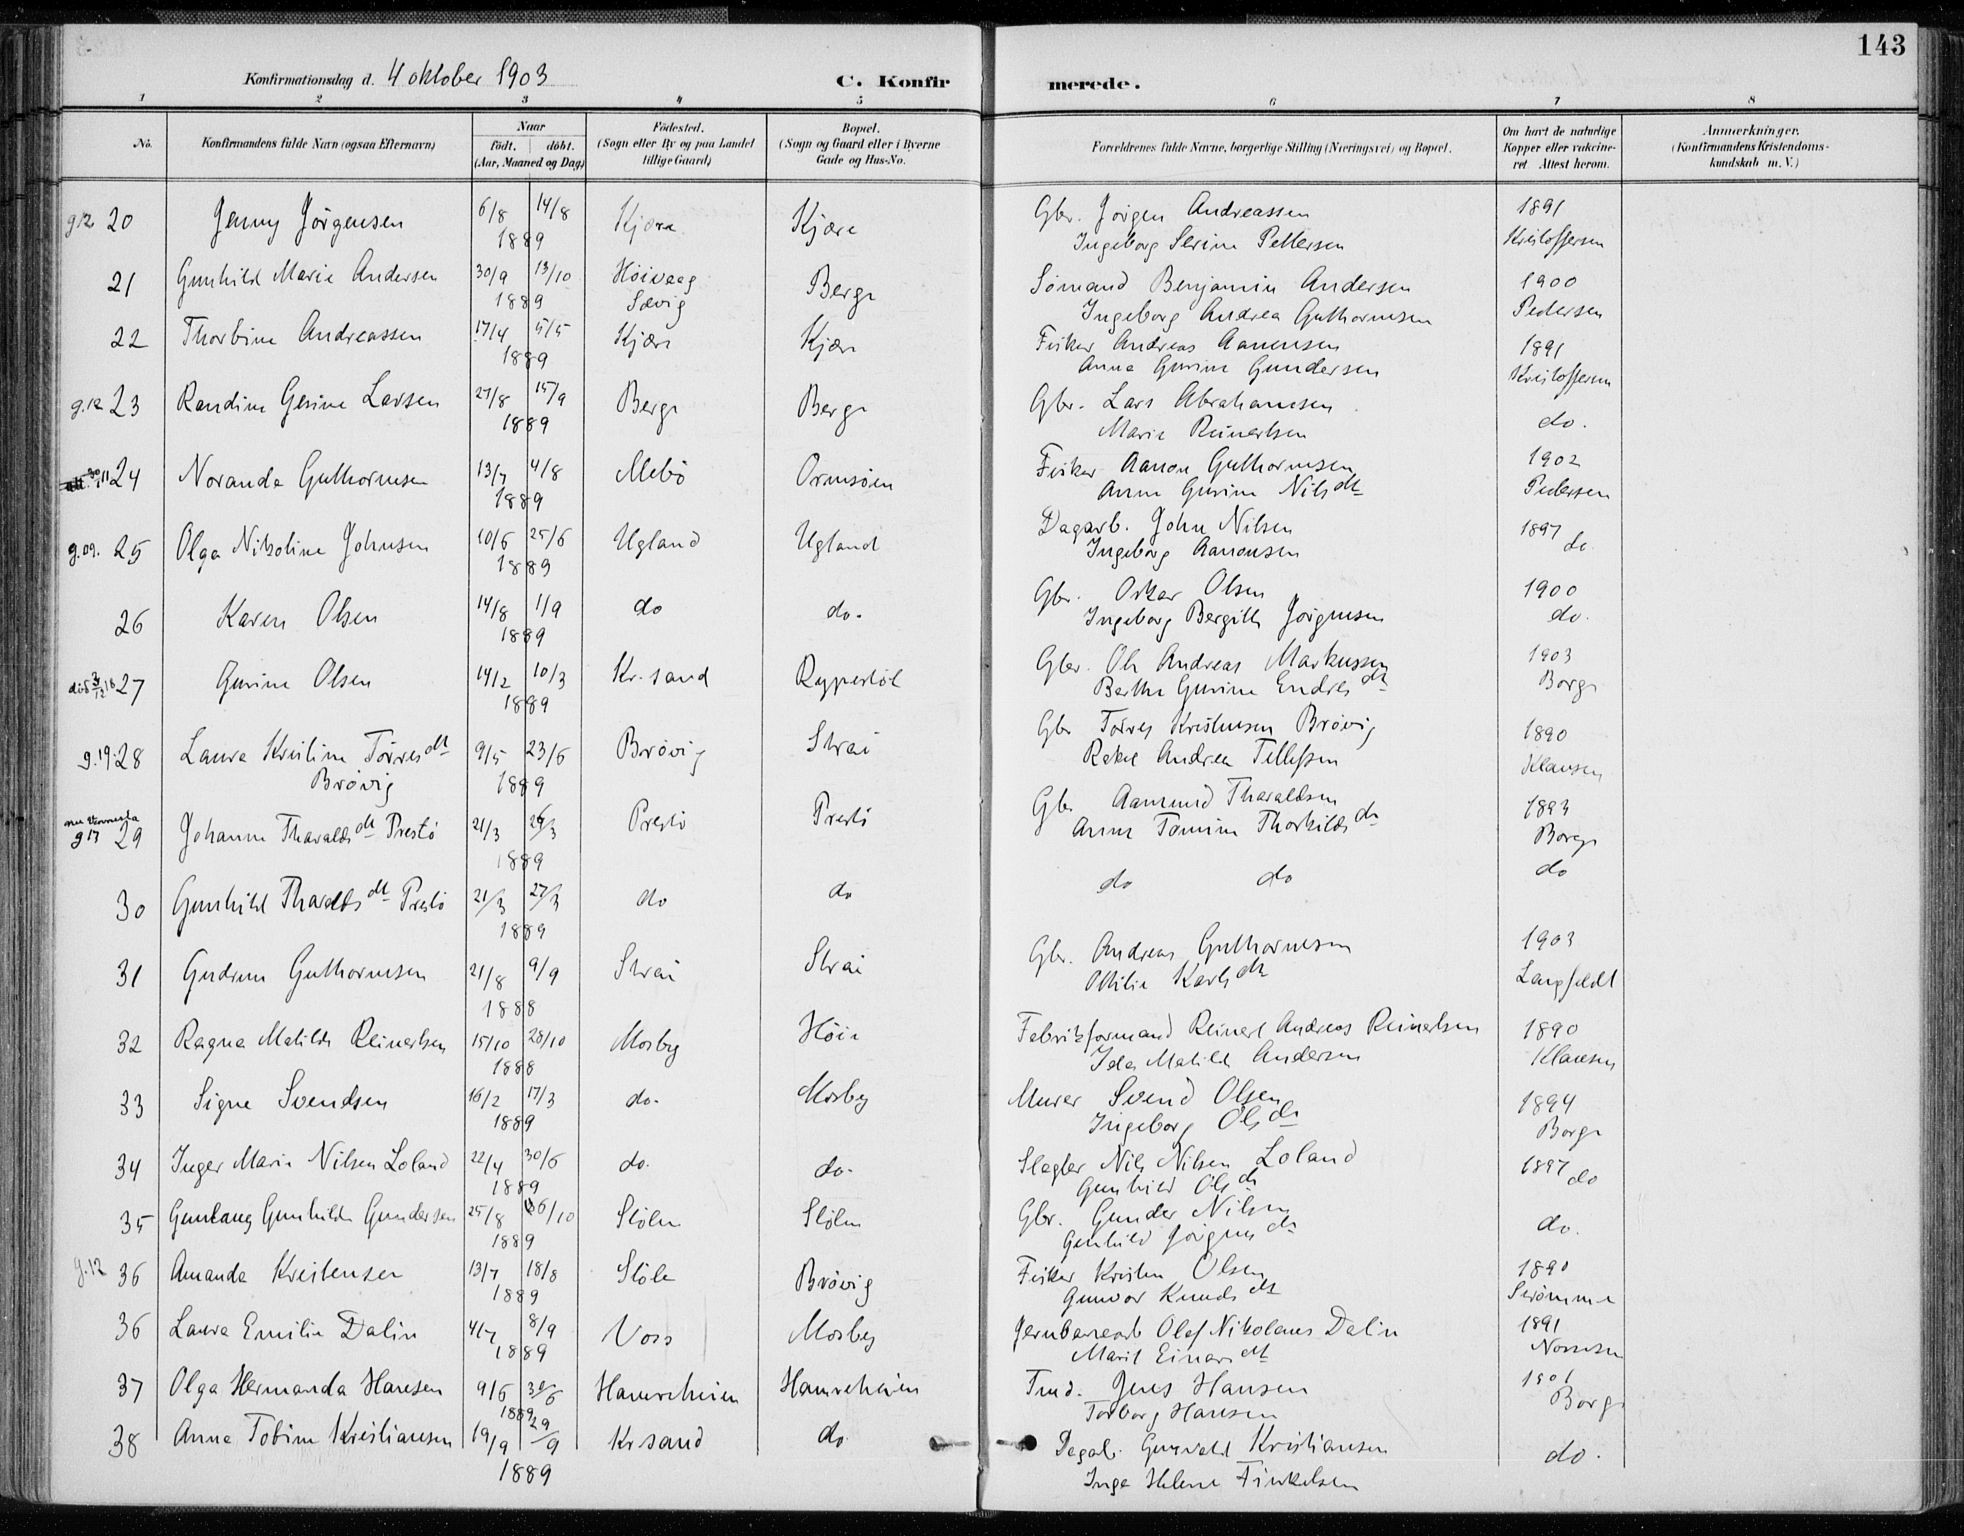 143
Konfirmationsdag d. 4 oktober 1903
C. Konfirmerede.
1 2 3 4 5 6 7 8
No.
Konfirmandens fulde Navn (ogsaa Efternavn)
Naar
født. døbt.
(Aar, Maaned og Dag)
Fødested.
(Sogn eller By og paa Landet
tillige Gaard)
Bopæl.
(Sogn og Gaard eller i Byerne
Gade og Hus-No.
Forældrenes fulde Navne, borgerlige Stilling (Næringsvei) og Bopæl.
Om havt de naturlige
Kopper eller vakcine-
ret Attest herom.
Anmærkninger.
(Konfirmandens Kristendoms-
kundskab m. V.)
g 12 20 Jenny Jörgensen 6/8 14/8 Kjære Kjære Gbr. Jörgen Andreassen 1891
1889 Ingeborg Serine Pettersen Kristoffersen
21 Gunhild Marie Andersen 30/9 13/10 Höivaag Berge Sömand Benjamin Andersen 1900
1889 Sævig Ingeborg Andrea Guthormsen Pedersen
22 Thorbine Andreassen 17/4 5/5 Kjære Kjære Fisker Andreas Aanensen 1891
1889 Anna Gurine Gundersen Kristoffersen
g.12 23 Randine Gesine Larsen 27/8 15/9 Berge Berge Gbr. Lars Abrahamsen do.
1889 Marie Reinertsen
24 Noranda Guthormsen 13/7 4/8 Mebö Ormsöen Fisker Aanon Guthormsen 1902
1889 Anne Gurine Nilsdt Pedersen
g.09. 25 Olga Nikoline Johnsen 10/6 25/6 Ugland Ugland Dagarb. John Nilsen 1897
1889 Ingeborg Aanonsen do
26 Karen Olsen 14/8 1/9 do do. Gbr. Oskar Olsen 1900
1889 Ingeborg Bergith Jörgensen do.
27 Gurine Olsen 14/2 10/3 Kr.sand Rypestöl Gbr. Ole Andreas Markussen 1903
1889 Berthe Gurine Endresdt Borge
g.19. 28 Laura Kristine Törresdt 9/5 23/6 Brövig Strai Gbr Törres Kristensen Brövig 1890
Brövig 1889 Rakel Andrea Tellefsen Klausen
g 17 29 Johanne Tharaldsdt Prestö 21/3 Prestö Prestö Gbr Aamund Tharaldsen 1893
1889 Anne Tomine Thorkildsdr Borge
30 Gunhild Tharaldsdt Prestö 21/3 27/3 do do do do do
1889
31 Gudrun Guthormsen 21/8 9/9 Strai Strai Gbr. Andreas Guthormsen 1903
1888 Othilie Karlsdt Langfeldt
32 Ragna Matilde Reinertsen 15/10 28/10 Mosby Höie Fabrikformand Reinert Andreas Reinertsen 1890
1888 Ida Matild Andersen Klausen
33 Signe Svendsen 16/2 17/3 do. Mosby Murer Svend Olsen 1894
1889 Ingeborg Olsdt Borge
34 Inger Marie Nilsen Loland 22/4 30/6 do. do. Slagter Nils Nilsen Loland 1897
1889 Gunhild Olsdt do
35 Gunlaug Gunhilde Gundersen 25/8 6/10 Stölen Stölen Gbr. Gunder Nilsen do.
1889 Gunhild Jörgensdt
g.12 36 Amanda Kristensen 13/7 18/8 Stöle Brövig Fisker Kristen Olsen 1890
1889 Gunvor Knudsdt Strömme
36 Laura Emilie Dalin 4/7 8/9 Voss Mosby Jernbanearb Olaf Nikolaus Dalin 1891
1889 Marit Einarsdt
37 Olga Hermanda Hansen 9/6 30/6 Hamreheien Hamreheien Tmd. Jens Hansen 1901
1889 Torborg Hansen Borge
38 Anna Tobine Kristiansen 19/9 29/9 Kr.sand do Dagarb. Gunvald Kristiansen do.
1889 Inga Helene Finkelsen